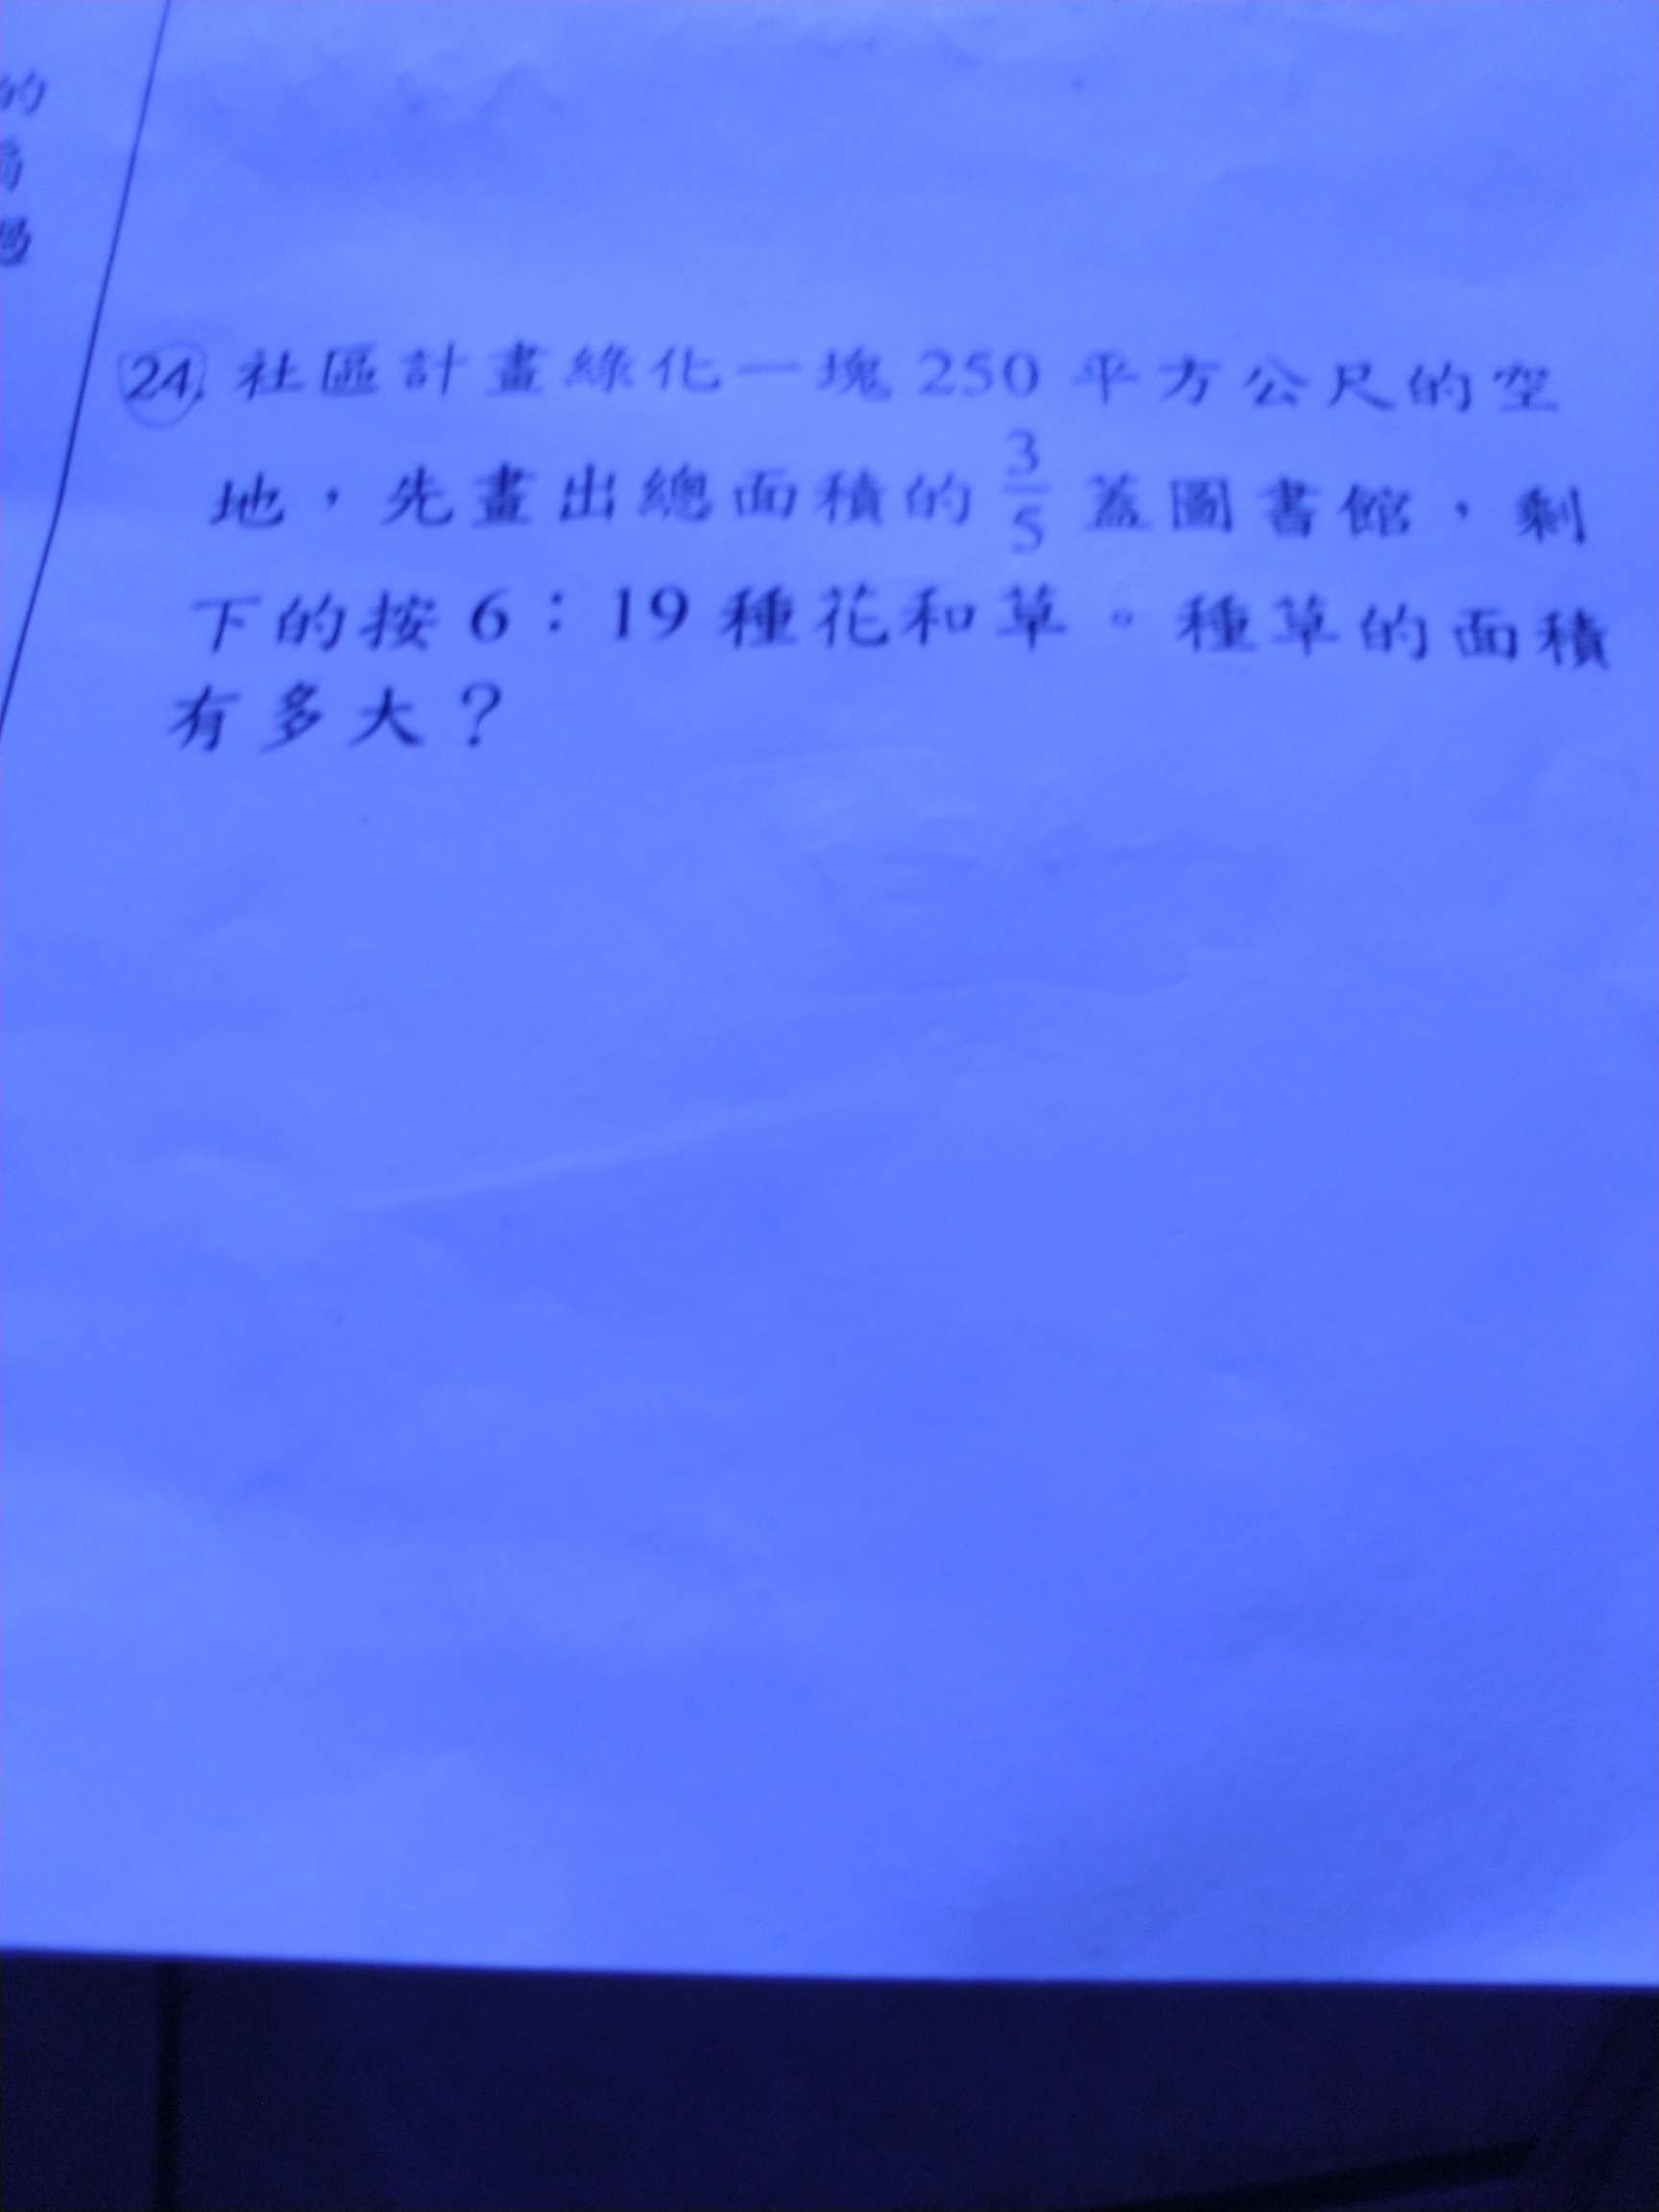 的
過
24. 社區計畫綠化一塊 250 平方公尺的空
地，先畫出總面積的 3/5 蓋圖書館，剩
下的按 6：19 種花和草。種草的面積
有多大？